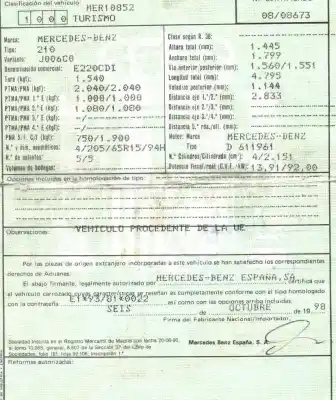 Clasificación del vehículo
MER10852
1 0 0 0 TURISMO
08/00673
Marca: MERCEDES-BENZ
Tipo: 210
Variante: J006C0
Denominación comercial: E220CDI
Tara (kgf): 1.540
PTMA/PMA (kgf): 2.040/2.040
PTMA/PMA 1.º E (kgf): 1.000/1.000
PTMA/PMA 2.º E (kgf): 1.080/1.080
PTMA/PMA 3.º E (kgf): -/-
PTMA/PMA 4.º E (kgf): -/-
750/1.900
N.º y dim. neumáticos: 4/205/65R15/94H
N.º de asientos: 5/5
Volumen de bodegas:
Clase según R. 36:
Altura total (mm): 1.445
Anchura total (mm): 1.799
Vía anterior posterior (mm): 1.560/1.551
Longitud total (mm): 4.795
Voladizo posterior (mm): 1.144
Distancia eje 1.º/2.º (mm): 2.833
Distancia eje 2.º/3.º (mm):
Distancia eje 3.º/4.º (mm):
Motor: Marca MERCEDES-BENZ
Tipo D 611961
N.º Cilindros/Cilindrada (cm³): 4/2.151
Potencia fiscal/real (C.V.F./kW): 13,91/92,00
Opciones incluidas en la homologación de tipo:
Observaciones: VEHICULO PROCEDENTE DE LA UE
Por las piezas de origen extranjero incorporadas a este vehículo se han satisfecho los correspondientes
derechos de Aduanas.
El abajo firmante, legalmente autorizado por MERCEDES-BENZ ESPAÑA,SA certifica que
el vehículo carrozado cuyas características se reseñan es completamente conforme con el tipo homologado
con la contraseña E1*93/81*0022 así como con las opciones arriba incluidas.
SEIS de OCTUBRE de 19 98
Firma del Fabricante Nacional/Importador,
Mercedes Benz España, S. A.
Reformas autorizadas: